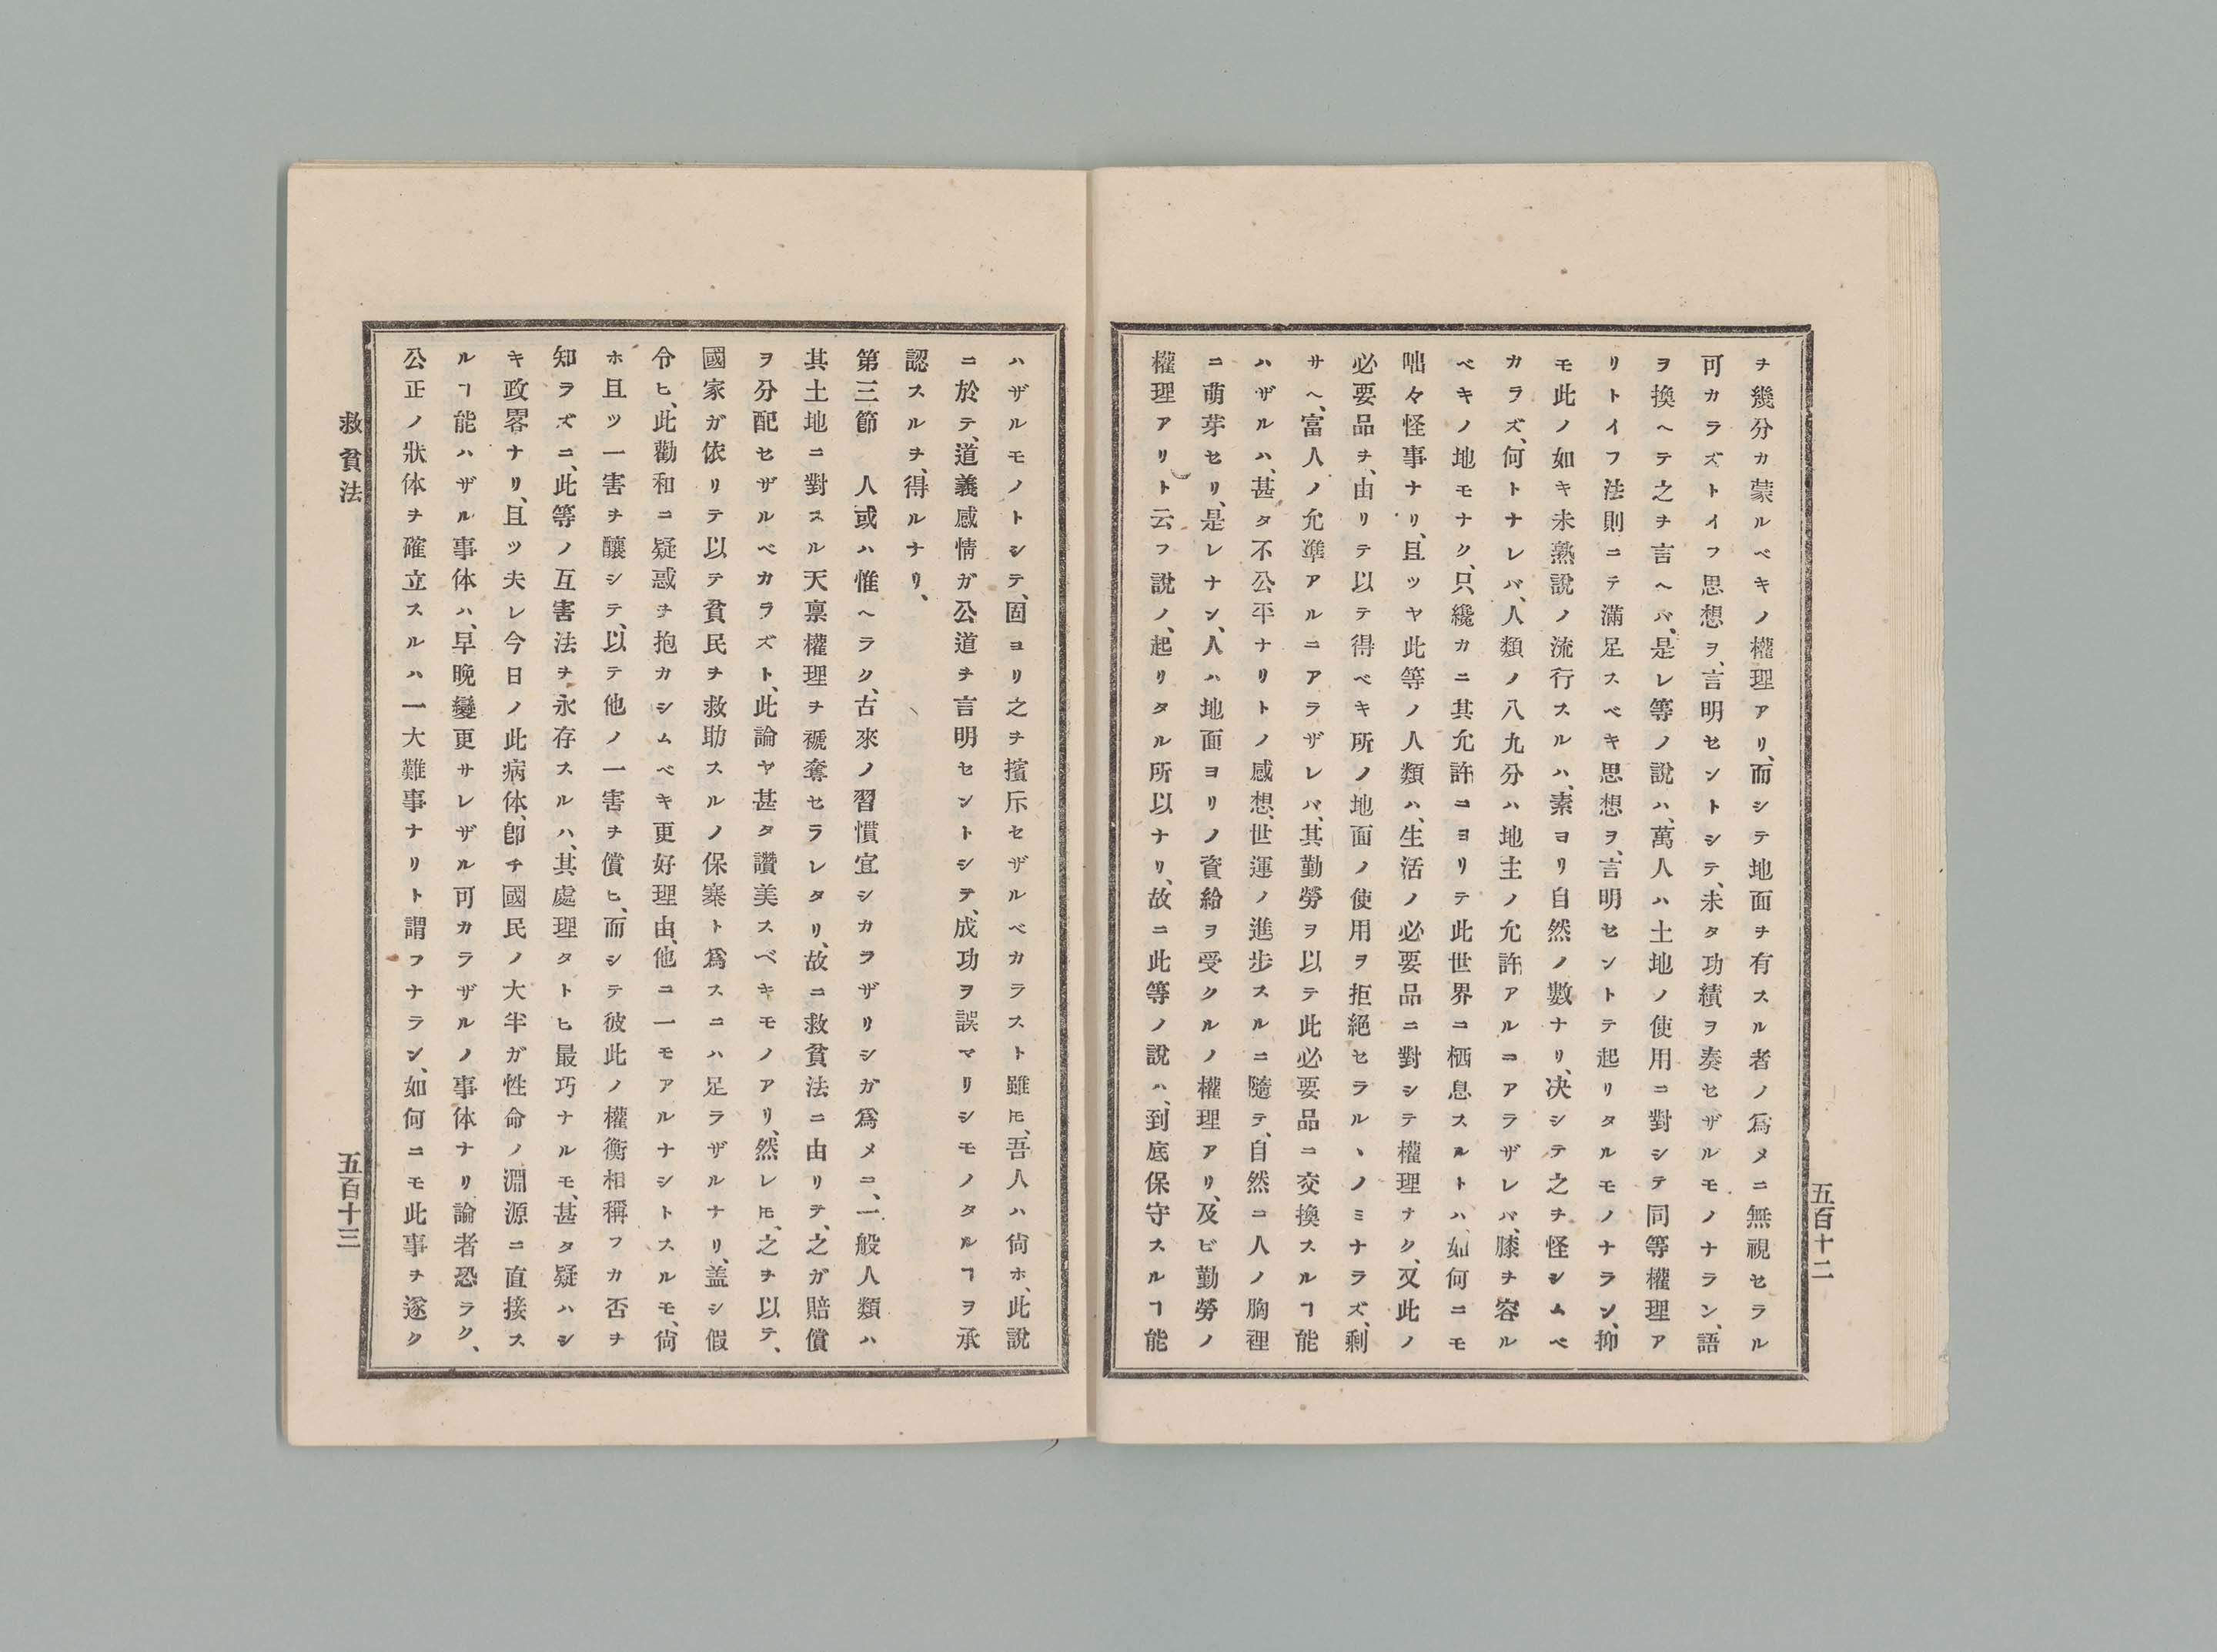 チ幾分カ蒙ルベキノ權理アリ、而シテ地面チ有スル者ノ爲メニ無視セラル
可カラズトイフ思想ヲ、言明セントシテ、未タ功績ヲ奏セザルモノナラン、語
ヲ換ヘテ之チ言ヘバ、是レ等ノ說ハ、萬人ハ土地ノ使用ニ對シテ同等權理ア
リトイフ法則ニテ滿足スベキ思想ヲ、言明セントテ起リタルモノナラン、抑
モ此ノ如キ未熟說ノ流行スルハ、素ヨリ自然ノ數ナリ、決シテ之チ怪シムベ
カラズ、何トナレバ、人類ノ八九分ハ地主ノ允許アルニアラザレバ、膝チ容ル
ベキノ地モナク、只纔カニ其允許ニヨリテ此世界ニ栖息スルトハ、如何ニモ
咄々怪事ナリ、且ツヤ此等ノ人類ハ、生活ノ必要品ニ對シテ權理ナク、又此ノ
必要品チ、由リテ以テ得ベキ所ノ地面ノ使用ヲ拒絕セラルヽノミナラズ、剩
サヘ、富人ノ允準アルニアラザレバ、其勤勞ヲ以テ此必要品ニ交換スルヿ能
ハザルハ、甚タ不公平ナリトノ感想、世運ノ進步スルニ隨テ、自然ニ人ノ胸裡
ニ萌芽セリ、是レナン、人ハ地面ヨリノ資給ヲ受クルノ權理アリ、及ビ勤勞ノ
權理アリト云フ說ノ、起リタル所以ナリ、故ニ此等ノ說ハ、到底保守スルヿ能
五百十二
ハザルモノトシテ、固ヨリ之チ擯斥セザルベカラスト雖ㇳモ、吾人ハ尙ホ、此說
ニ於テ、道義感情ガ公道チ言明セントシテ、成功ヲ誤マリシモノタルヿヲ承
認スルチ、得ルナリ、
第三節　人或ハ惟ヘラク、古來ノ習慣宜シカラザリシガ爲メニ、一般人類ハ
其土地ニ對スル天禀權理チ褫奪セラレタリ、故ニ救貧法ニ由リテ、之ガ賠償
ヲ分配セザルベカラズト、此論ヤ甚タ讚美スベキモノアリ、然レㇳモ、之チ以テ、
國家ガ依リテ以テ貧民チ救助スルノ保寨ト爲スニハ足ラザルナリ、盖シ假
令ヒ、此勸和ニ疑惑チ抱カシムベキ更好理由、他ニ一モアルナシトスルモ、尙
ホ且ツ一害チ釀シテ、以テ他ノ一害チ償ヒ、而シテ彼此ノ權衡相稱フカ否チ
知ラズニ、此等ノ互害法チ永存スルハ、其處理タトヒ最巧ナルモ、甚タ疑ハシ
キ政畧ナリ、且ツ夫レ今日ノ此病体、卽チ國民ノ大半ガ性命ノ淵源ニ直接ス
ルヿ能ハザル事体ハ、早晚變更サレザル可カラザルノ事体ナリ論者恐ラク、
公正ノ狀体チ確立スルハ一大難事ナリト謂フナラン、如何ニモ此事チ遂ク
救貧法
五百十三